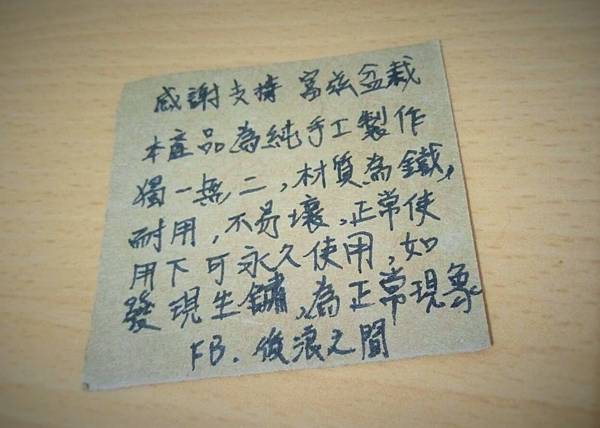 感謝支持 富茲盆栽
本產品為純手工製作
獨一無二,材質為鐵,
耐用,不易壞,正常使
用下可永久使用,如
發現生鏽,為正常現象
FB. 後浪之間